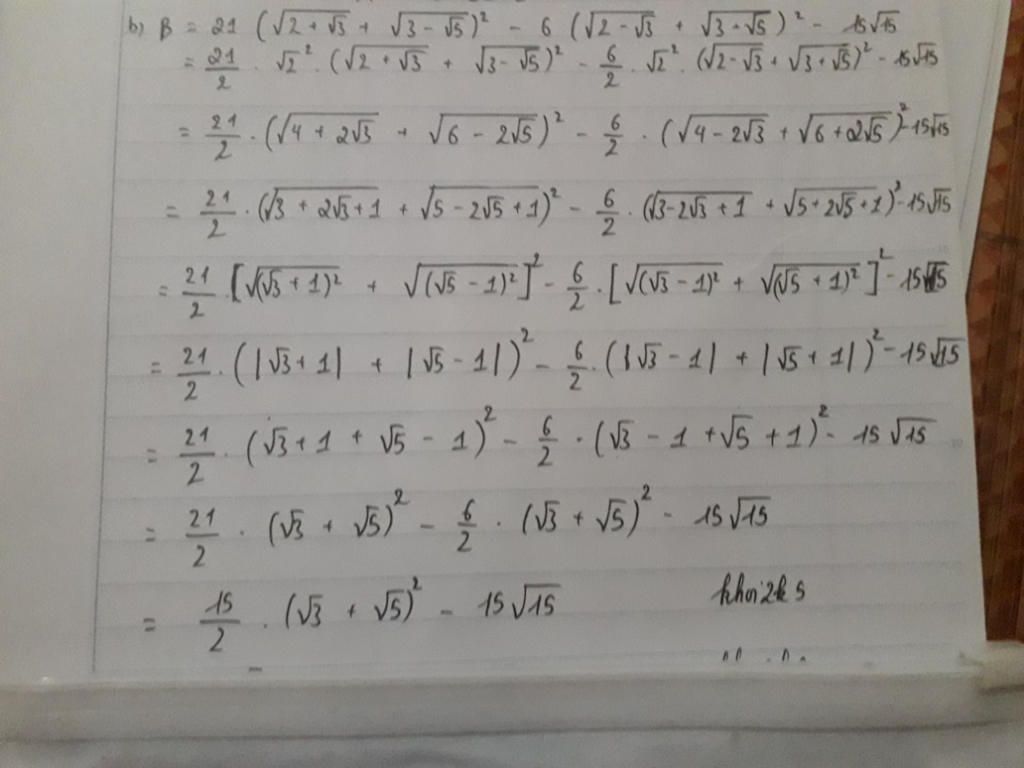 b) B = 21 (√(2 + √3) + √(3 - √5))² - 6 (√(2 - √3) + √(3 + √5))² - 15√15
= 21/2 . √2² . (√(2 + √3) + √(3 - √5))² - 6/2 . √2² . (√(2 - √3) + √(3 + √5))² - 15√15
= 21/2 . (√(4 + 2√3) + √(6 - 2√5))² - 6/2 . (√(4 - 2√3) + √(6 + 2√5))² - 15√15
= 21/2 . (√(3 + 2√3 + 1) + √(5 - 2√5 + 1))² - 6/2 . (√(3 - 2√3 + 1) + √(5 + 2√5 + 1))² - 15√15
= 21/2 . [√(√3 + 1)² + √(√5 - 1)²]² - 6/2 . [√(√3 - 1)² + √(√5 + 1)²]² - 15√15
= 21/2 . (|√3 + 1| + |√5 - 1|)² - 6/2 . (|√3 - 1| + |√5 + 1|)² - 15√15
= 21/2 . (√3 + 1 + √5 - 1)² - 6/2 . (√3 - 1 + √5 + 1)² - 15√15
= 21/2 . (√3 + √5)² - 6/2 . (√3 + √5)² - 15√15
= 15/2 . (√3 + √5)² - 15√15
khoi2k5